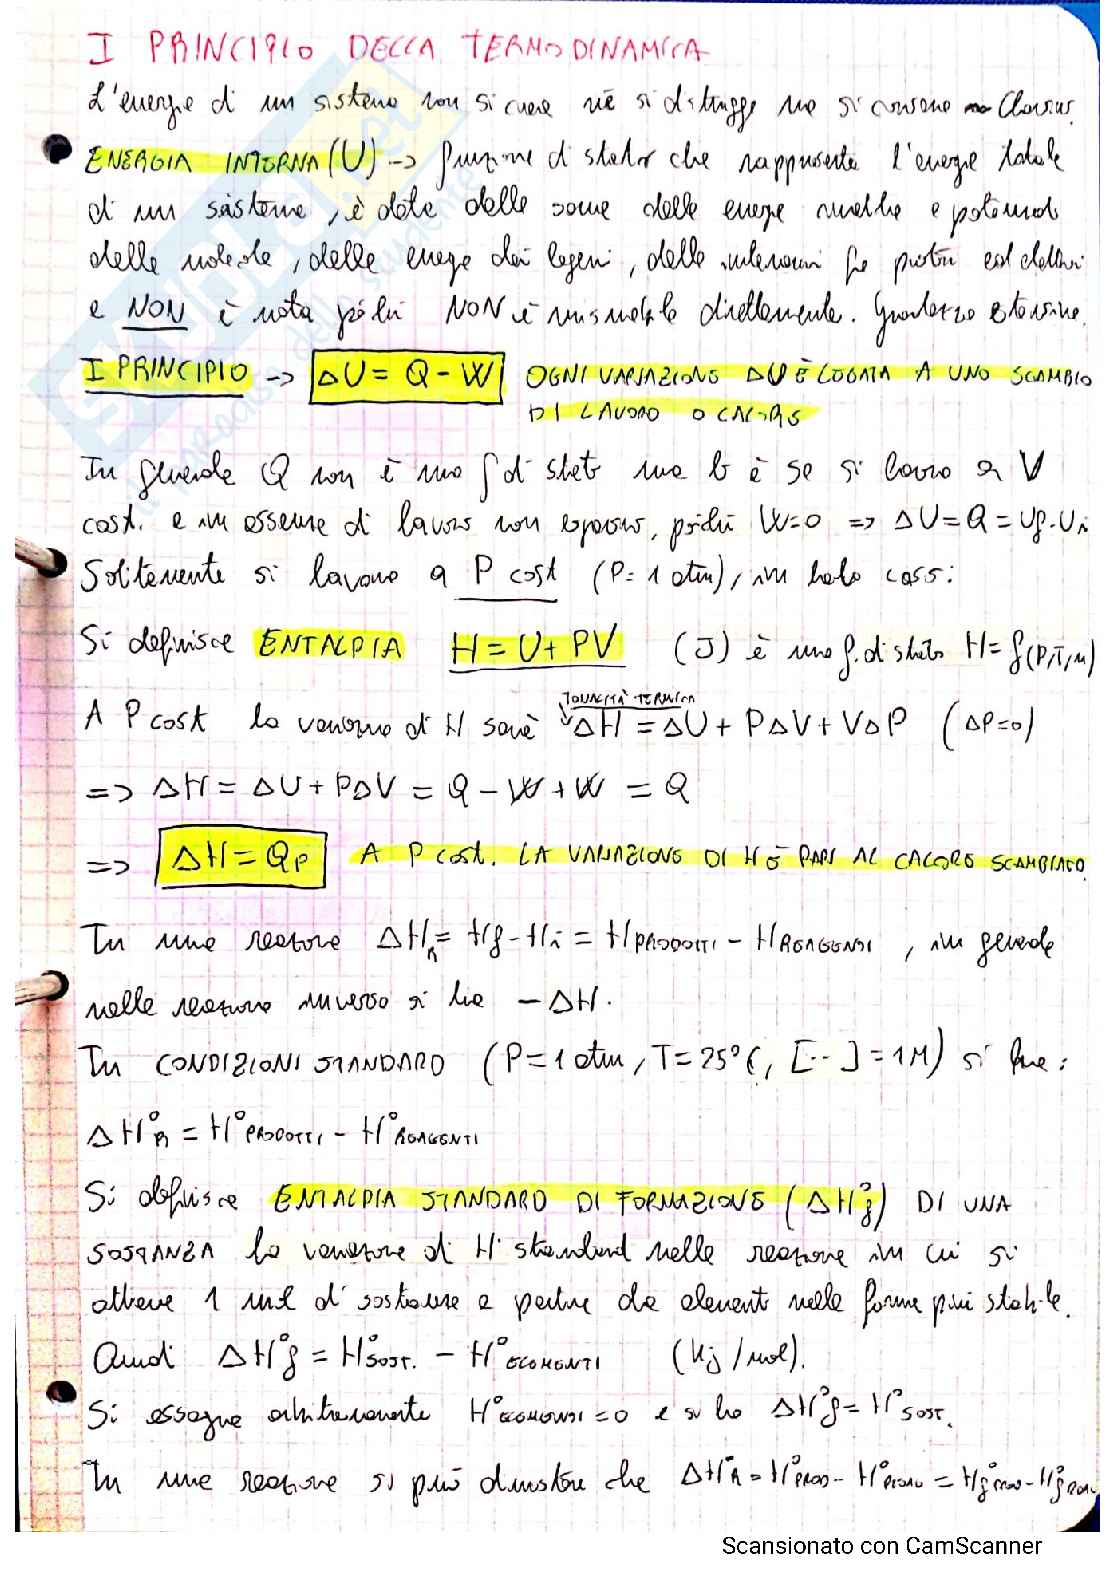 I PRINCIPIO DELLA TERMODINAMICA
L'energia di un sistema non si crea nè si distrugge ma si conserva → Clausius.
ENERGIA INTERNA (U) → funzione di stato che rappresenta l'energia totale
di un sistema, è data dalla somma delle energie cinetiche e potenziali
delle molecole, delle energie dei legami, delle interazioni fra protoni ed elettroni
e NON è nota poichè NON è misurabile direttamente. Grandezza estensiva.
I PRINCIPIO → ΔU = Q - W OGNI VARIAZIONE ΔU È LEGATA A UNO SCAMBIO
DI LAVORO O CALORE
In generale Q non è una f di stato ma lo è se si lavora a V
cost. e in assenza di lavoro non espans., poichè W=0 => ΔU = Q = Uf-Ui
Solitamente si lavora a P cost (P= 1 atm), in tale caso:
Si definisce ENTALPIA H = U + PV (J) è una f. di stato H= f(P,T,n)
UGUALITÀ TERMICA
A P cost la variazione di H sarà ΔH = ΔU + PΔV + VΔP (ΔP=0)
=> ΔH = ΔU + PΔV = Q - W + W = Q
=> ΔH = Qp A P cost. LA VARIAZIONE DI H È PARI AL CALORE SCAMBIATO
In una reazione ΔHR = Hf - Hi = HPRODOTTI - HREAGENTI, in generale
nella reazione inversa si ha - ΔH.
In CONDIZIONI STANDARD (P = 1 atm, T = 25°C, [..] = 1M) si ha:
ΔH°R = H°PRODOTTI - H°REAGENTI
Si definisce ENTALPIA STANDARD DI FORMAZIONE (ΔH°f) DI UNA
SOSTANZA la variazione di H standard nella reazione in cui si
ottiene 1 mol di sostanza a partire da elementi nella forma più stabile.
Quindi ΔH°f = H°SOST. - H°ELEMENTI (kJ/mol).
Si assegna arbitrariamente H°ELEMENTI = 0 e si ha ΔH°f = H°SOST.
In una reazione si può dimostrare che ΔH°R = H°PROD - H°REAG = H°f PROD - H°f REAG
Scansionato con CamScanner